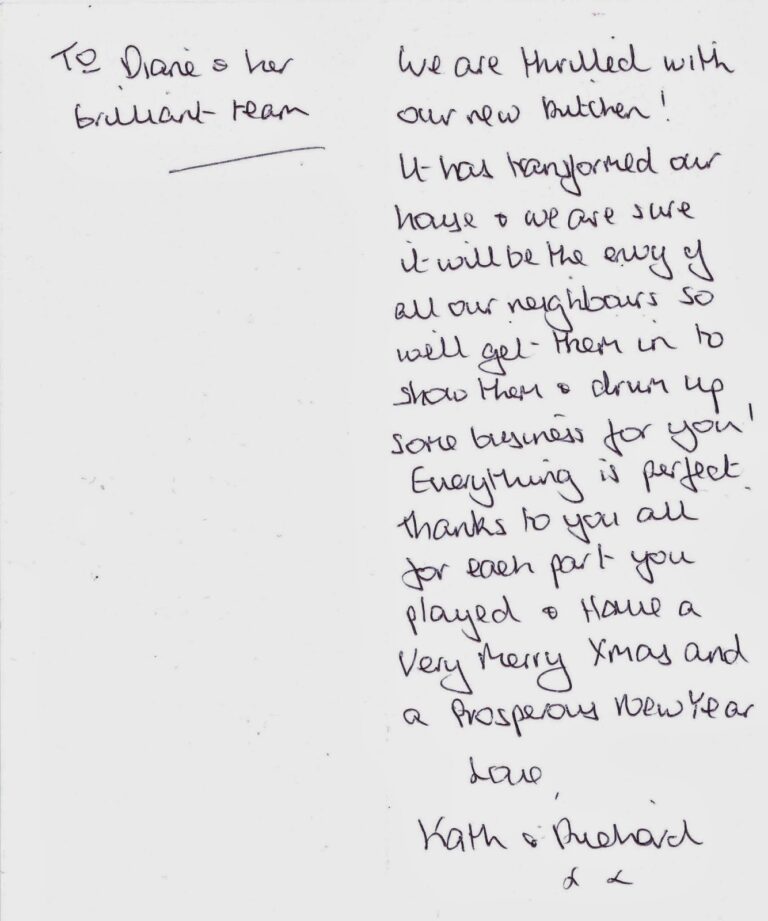 To Diane & her
brilliant team
We are thrilled with
our new kitchen!
It has transformed our
house & we are sure
it will be the envy of
all our neighbours so
we'll get them in to
show them & drum up
some business for you!
Everything is perfect.
Thanks to you all
for each part you
played & Have a
Very Merry Xmas and
a Prosperous New Year
Love,
Kath & Richard
x x